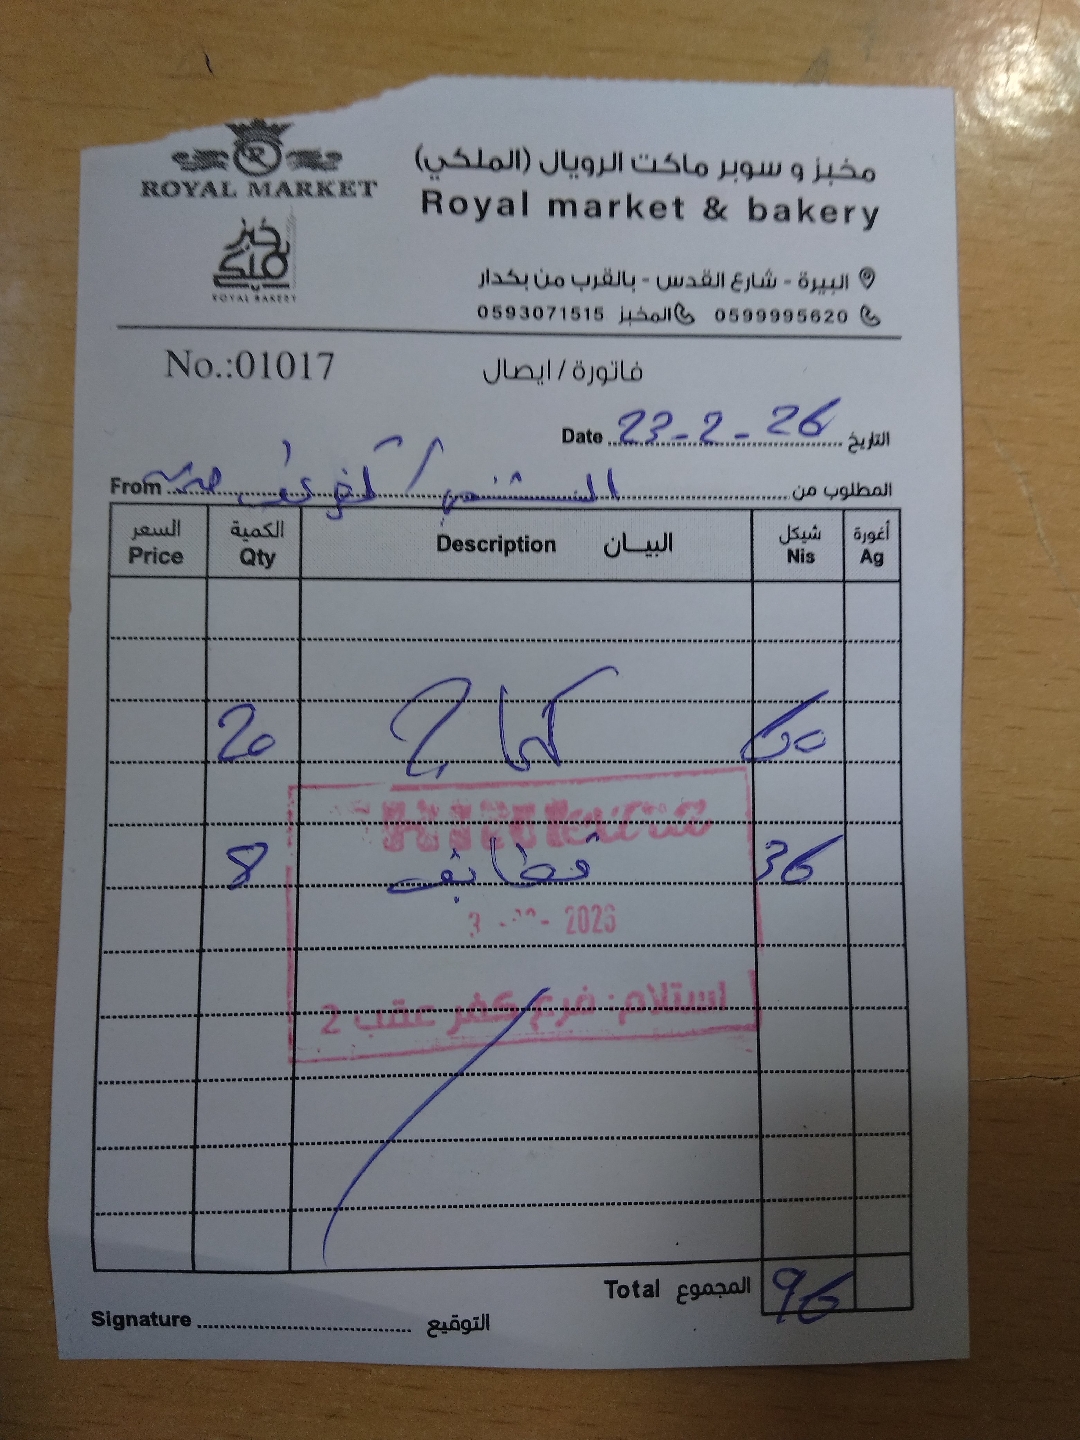 ROYAL MARKET
خبز ملكي
ROYAL BAKERY
مخبز و سوبر ماركت الرويال (الملكي)
Royal market & bakery
البيرة - شارع القدس - بالقرب من بكدار
0599995620 المخبز 0593071515
No.:01017
فاتورة / ايصال
Date 23-2-26 التاريخ
From المستشفى / كفر عقب المطلوب من
السعر Price الكمية Qty Description البيـــان شيكل Nis أغورة Ag
20 كماج 60
8 قطايف 36
2026
استلام: فرع كفر عقب 2
Total المجموع 96
Signature التوقيع